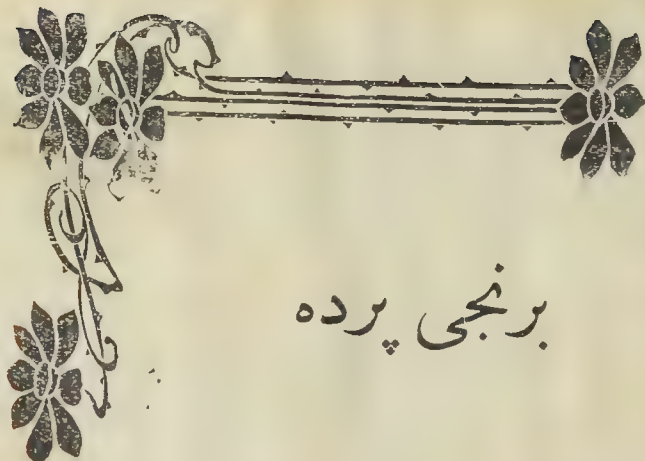 برنجی پرده